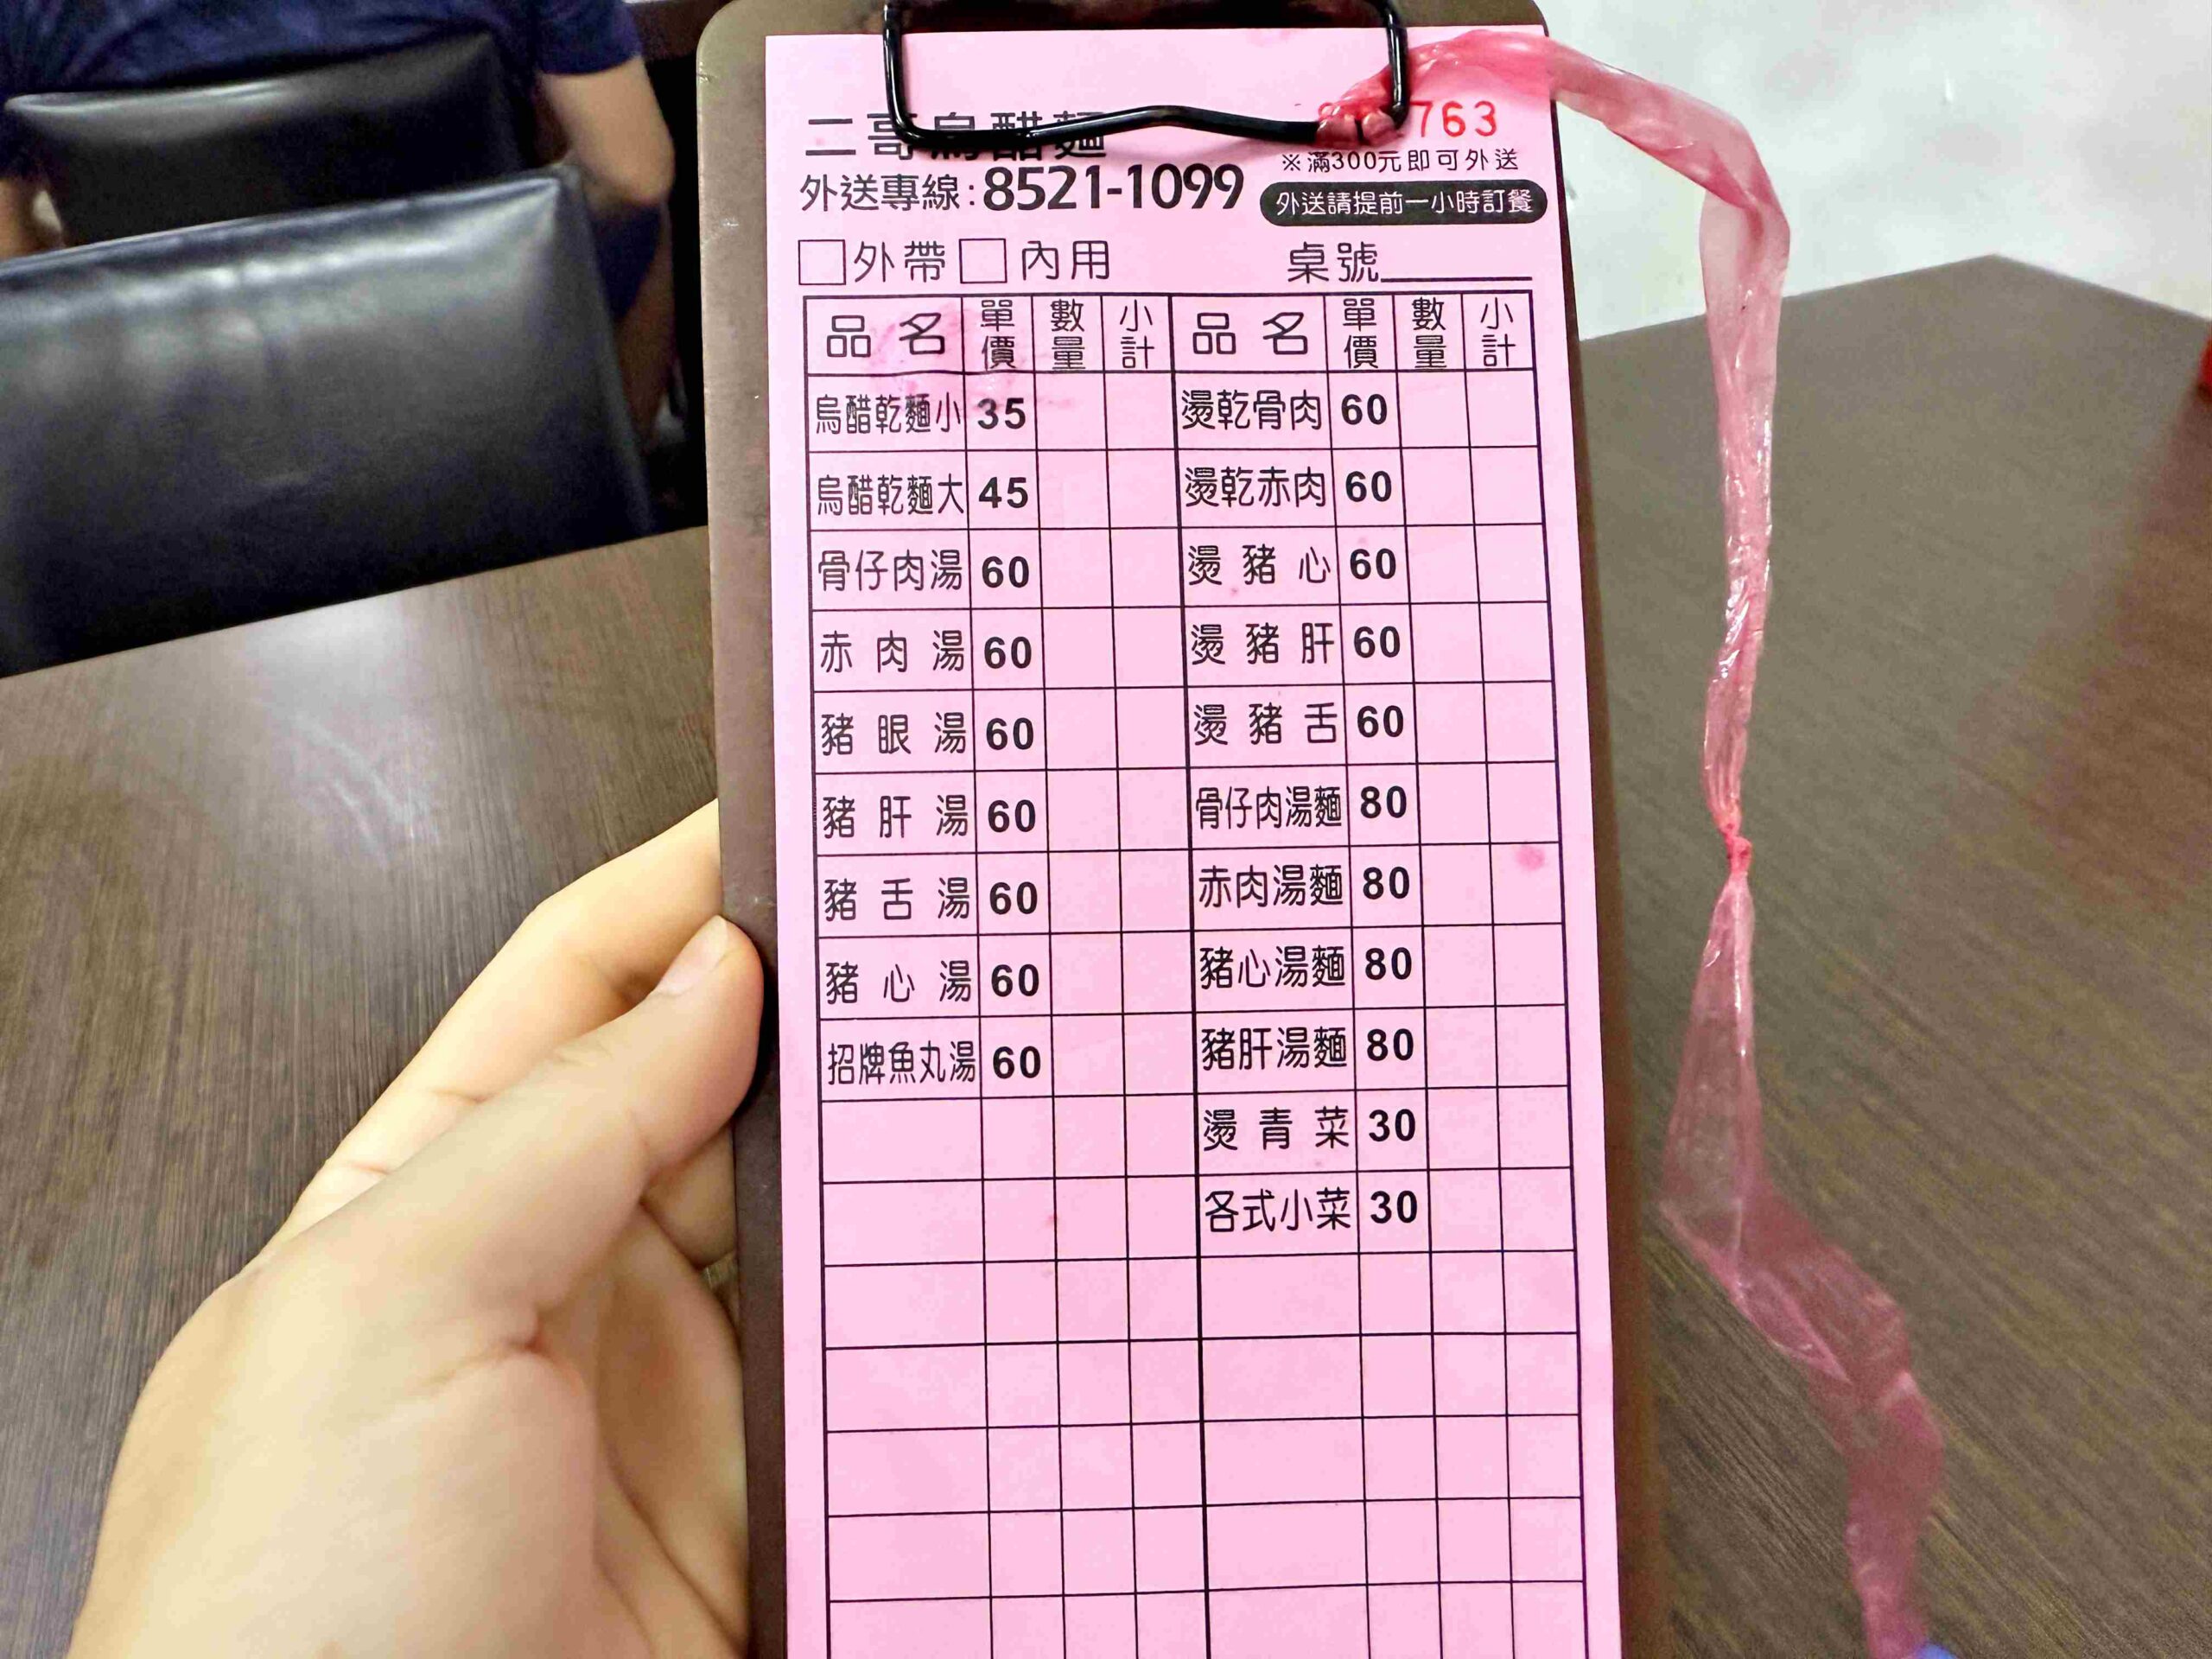 二哥烏醋麵
763
※滿300元即可外送
外送專線:8521-1099
外送請提前一小時訂餐
外帶 內用 桌號
品名 單價 數量 小計 品名 單價 數量 小計
烏醋乾麵小 35 燙乾骨肉 60
烏醋乾麵大 45 燙乾赤肉 60
骨仔肉湯 60 燙豬心 60
赤肉湯 60 燙豬肝 60
豬眼湯 60 燙豬舌 60
豬肝湯 60 骨仔肉湯麵 80
豬舌湯 60 赤肉湯麵 80
豬心湯 60 豬心湯麵 80
招牌魚丸湯 60 豬肝湯麵 80
燙青菜 30
各式小菜 30